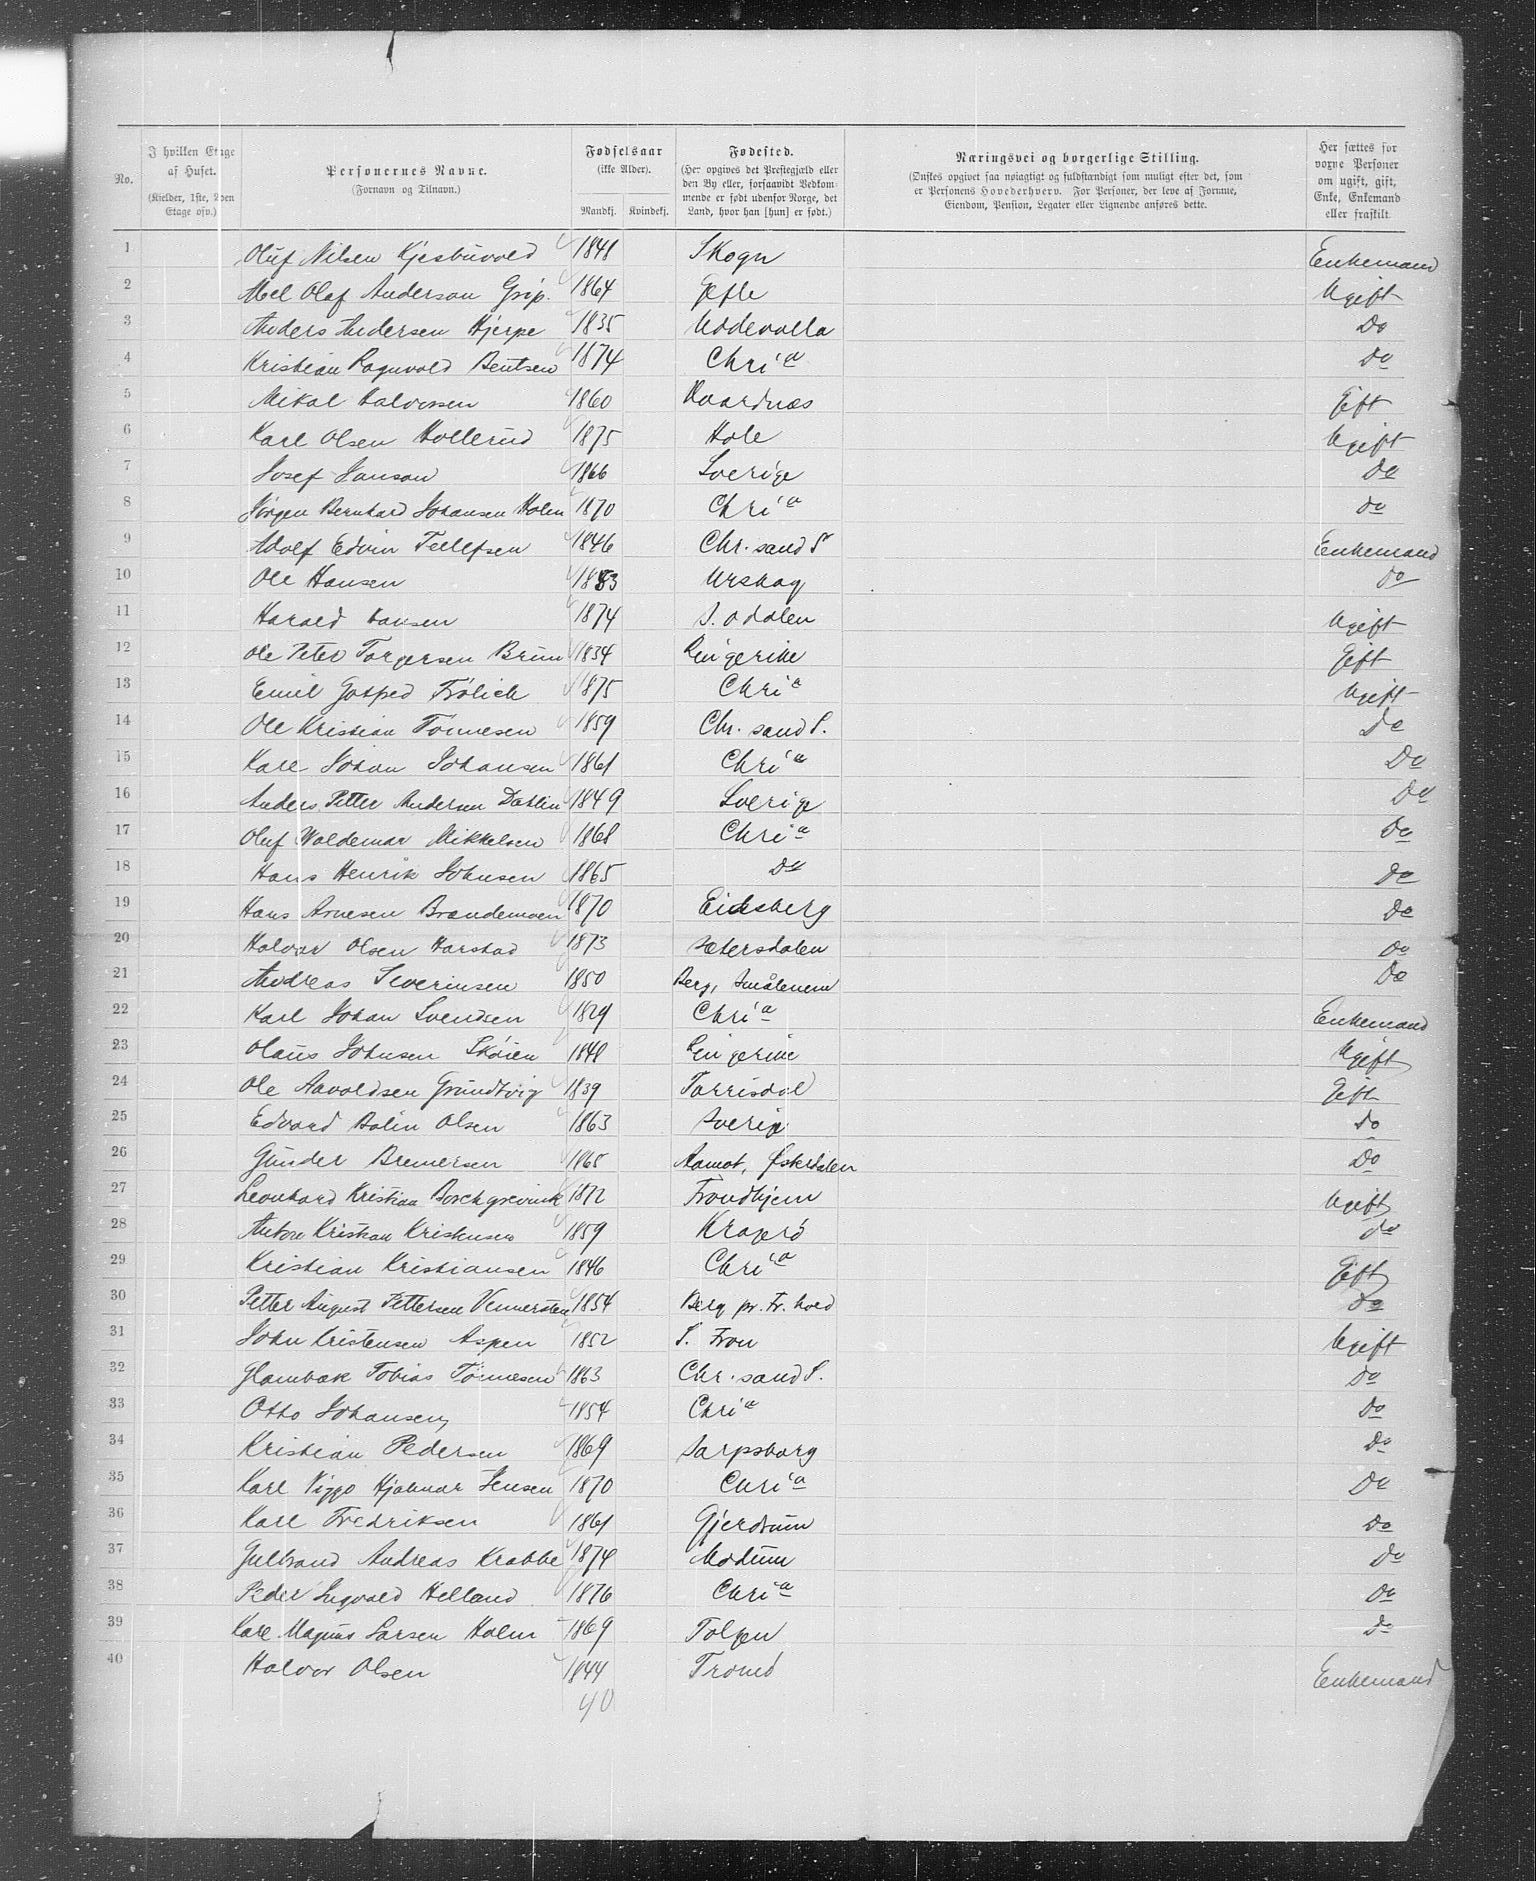 No.
I hvilken Etage
af Huset.
(Kjelder, 1ste, 2den
Etage osv.)
Personernes Navne.
(Fornavn og Tilnavn.)
Fødselsaar
(ikke Alder).
Mandkj. Kvindekj.
Fødested.
(Her opgives det Prestegjæld eller
den By eller, forsaavidt Vedkom-
mende er født udenfor Norge, det
Land, hvor han [hun] er født.)
Næringsvei og borgerlige Stilling.
(Ønskes opgivet saa nøiagtigt og fuldstændigt som muligt efter det, som
er Personens Hovederhverv. For Personer, der leve af Formue,
Eiendom, Pension, Legater eller Lignende anføres dette.
Her sættes for
voxne Personer
om ugift, gift,
Enke, Enkemand
eller fraskilt.
1 Oluf Nilsen Kjesbuvold 1841 Skogn Enkemand
2 Olaf Anderson Grip. 1864 Gefle Ugift
3 Anders Andersen Hjerpe 1835 Uddevalla Do
4 Kristian Ragnvald Bentsen 1874 Chri a Do
5 Mikal Halvorsen 1860 Gift
6 Karl Olsen Hollerud 1875 Hole Ugift
7 Josef Janson 1866 Sverige Do
8 Jørgen Bernhard Johansen Holm 1870 Chri a do
9 Adolf Edvin Tellefsen 1846 Chr. sand S Enkemand
10 Ole Hansen 1853 Urskog do
11 Harald Hansen 1874 S. Odalen Ugift
12 Ole Peter Torgersen Bruun 1834 Ringerike Gift
13 Emil Frölich 1875 Chri a Ugift
14 Ole Kristian Tönnesen 1859 Chr. sand S. Do
15 Karl Johan Johansen 1861 Chri a Do
16 Anders Petter Anderson Dahlin 1849 Sverige Do
17 Oluf Waldemar Mikkelsen 1868 Chri a Do
18 Hans Henrik Johnsen 1865 Do Do
19 Hans Arnesen Brandemoen 1870 Eidsberg Do
20 Halvor Olsen Harstad 1873 Sætersdalen Do
21 Andreas Severinsen 1850 Berg, Smålenene Do
22 Karl Johan Svendsen 1829 Chri a Enkemand
23 Olaus Johnsen Skøien 1848 Ringerike Ugift
24 Ole Aavoldsen Grundtvig 1839 Torrisdal Gift
25 Edvard Bolin Olsen 1863 Sverige Do
26 Gunder Bremersen 1865 Aamot, Østerdalen Do
27 Leonhard Kristian Borchgrevink 1872 Trondhjem Ugift
28 Anton Kristian Kristensen 1859 Kragerö do
29 Kristian Kristiansen 1846 Chri a Gift
30 Petter August Pettersen Vennersten 1854 Berg pr. Fr. hald Do
31 John Kristensen Aspen 1852 S. Fron Ugift
32 Glambæk Tobias Tönnesen 1863 Chr. sand S. Do
33 Otto Johansen, 1854 Chri a Do
34 Kristian Pedersen 1869 Sarpsborg Do
35 Karl Viggo Hjalmar Jensen 1870 Chri a Do
36 Karl Fredriksen 1861 Gjerdrum Do
37 Gulbrand Andreas Krabbe 1874 Modum Do
38 Peder Ingvald Helland 1876 Chri a Do
39 Karl Magnus Larsen Holm 1869 Tolgen Do
40 Halvor Olsen 1844 Tromö Enkemand
40